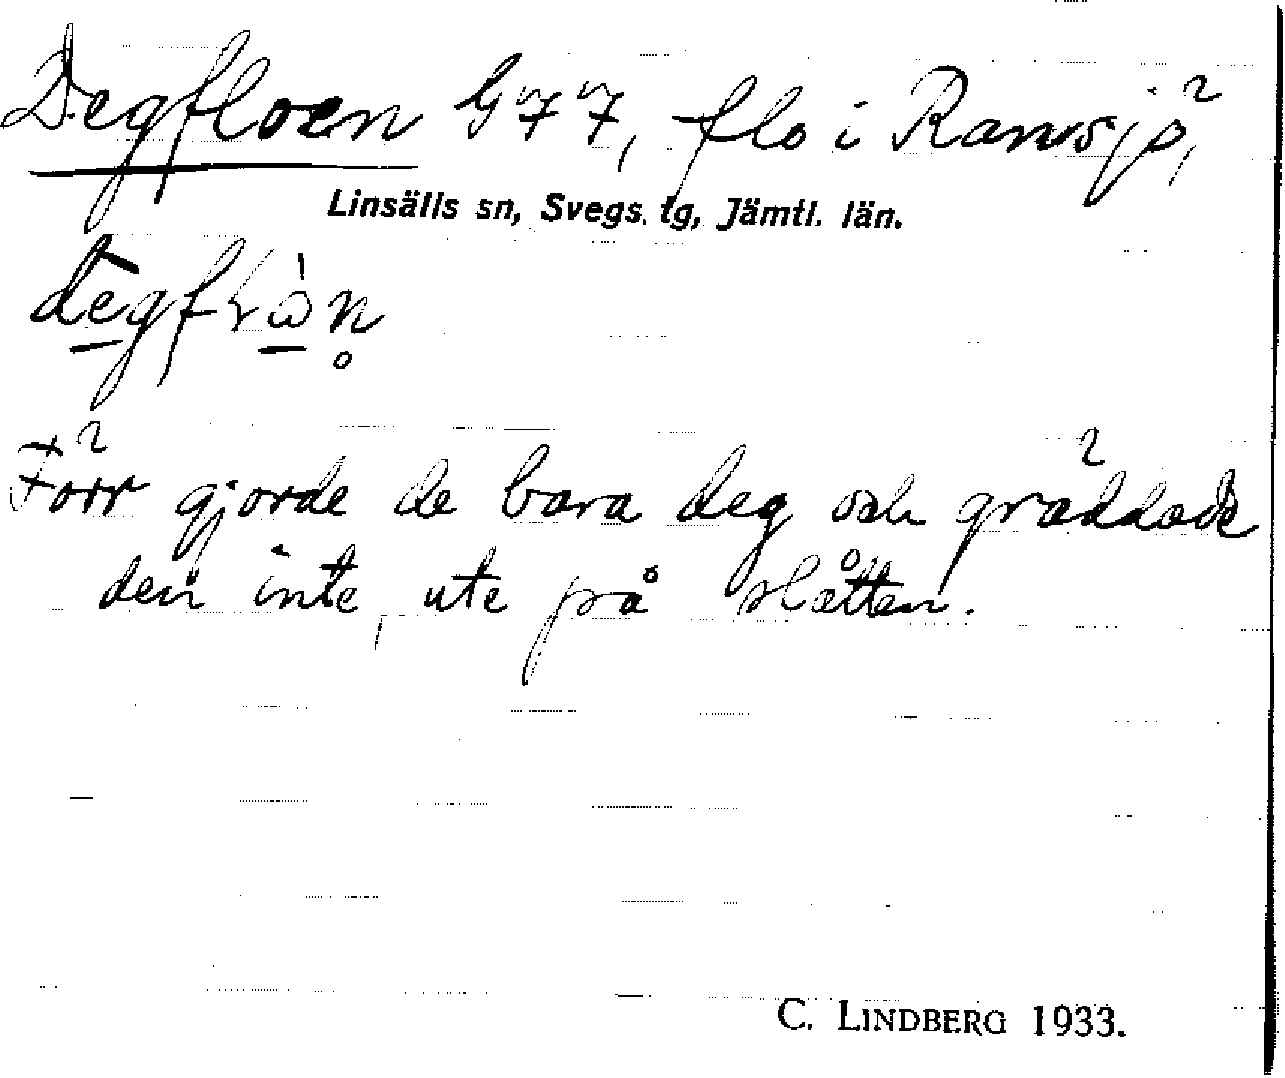 Degfloen G77, flo i Ramsjö,
Linsälls sn, Svegs. tg, Jämtl. län.
Förr gjorde de bara deg och gräddade
den inte, ute på slåtten.
C. LINDBERG 1933.